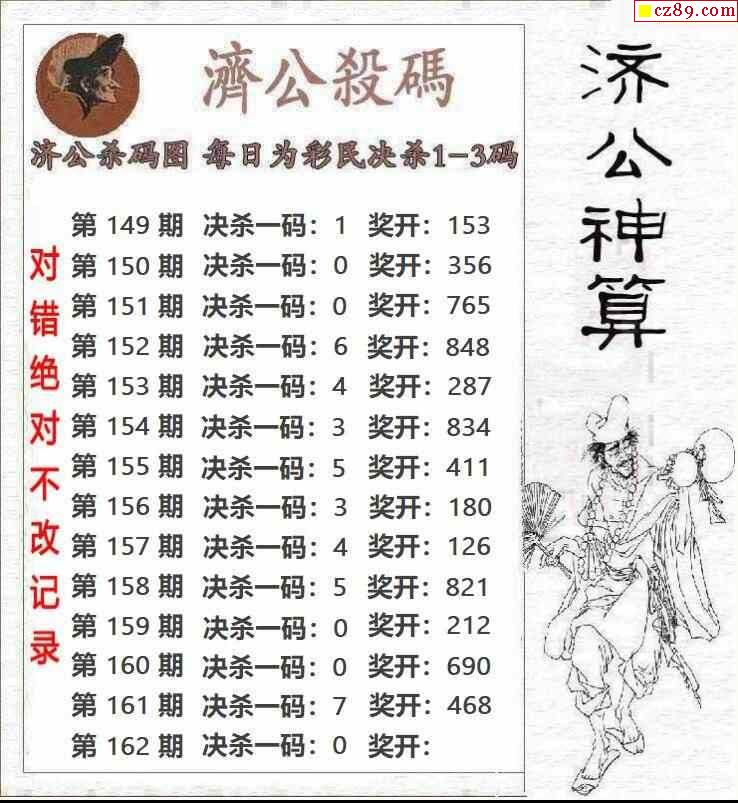 cz89.com
濟公殺碼
济公杀码图 每日为彩民决杀1-3码
第 149 期 决杀一码：1 奖开：153
第 150 期 决杀一码：0 奖开：356
第 151 期 决杀一码：0 奖开：765
第 152 期 决杀一码：6 奖开：848
第 153 期 决杀一码：4 奖开：287
第 154 期 决杀一码：3 奖开：834
第 155 期 决杀一码：5 奖开：411
第 156 期 决杀一码：3 奖开：180
第 157 期 决杀一码：4 奖开：126
第 158 期 决杀一码：5 奖开：821
第 159 期 决杀一码：0 奖开：212
第 160 期 决杀一码：0 奖开：690
第 161 期 决杀一码：7 奖开：468
第 162 期 决杀一码：0 奖开：
对错绝对不改记录
济公神算